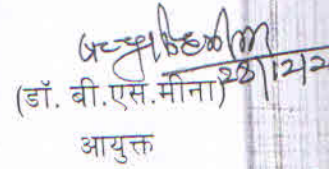 28/12/2
(डॉ. बी.एस.मीना)
आयुक्त